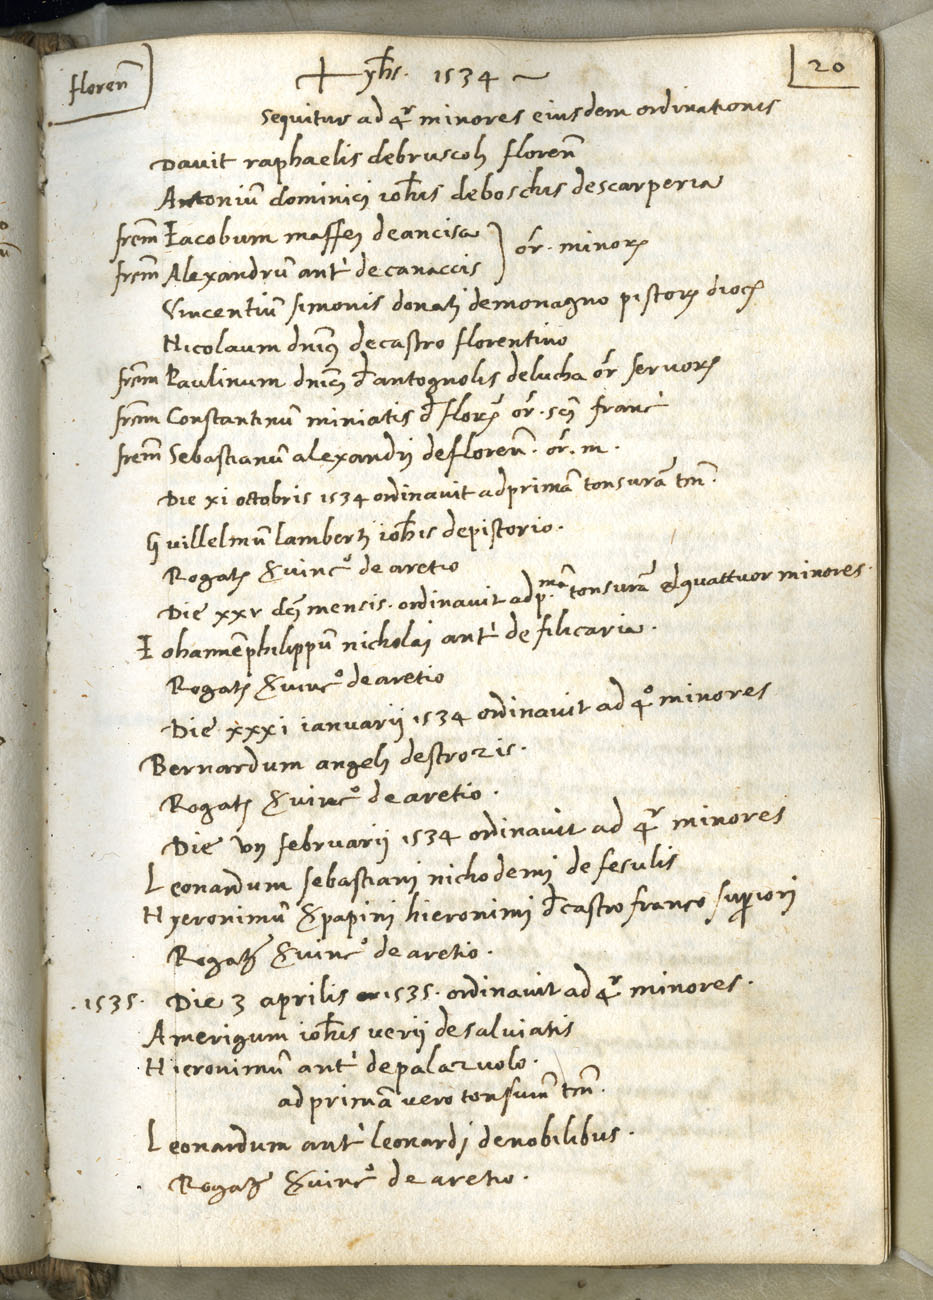 floren̄
20
+ yhs. 1534 ~
Sequitur ad qr minores eiusdem ordinationis
Davit raphaelis debruscoli floren̄
Antoniū dominici ioh̄is deboschis descarperia
frem̄ Iacobum maffei deancisa
frem̄ Alexandrū ant' de canaccis
or̄. minorꝝ
Vincentiū simonis donati demonagno pistorꝝ diocꝭ
Nicolaum dnīci decastro florentino
frem̄ Paulinum dnīci d̄ antognolis delucha or̄ servorꝝ
frem̄ Constantinū miniatis d̄ florꝭ or̄. sc̄i franc'
frem̄ Sebastianū alexandri defloren̄. or̄. m.
Die xi octobris 1534 ordinavit adprimā tonsurā tm̄.
Guillelmū lamberti ioh̄is depistorio.
Rogatꝭ xvincº de aretio
Die xxv dc̄i mensis. ordinavit adp.mā tonsurā et quattuor minores.
Iohannēphilippū nicholai ant' de filicaria.
Rogatꝭ xvincº de aretio
Die xxxi ianuarii 1534 ordinavit ad qº minores
Bernardum angeli destrozis.
Rogatꝭ xvincº de aretio.
Die vij februarii 1534 ordinavit ad qr minores
Leonardum sebastiani nichodemi de fesulis
Hyeronimū xpapini hieronimi d̄ castro franco sup̱iori
Rogatꝭ xvincº de aretio.
.1535. Die 3 aprilis 1535. ordinavit ad qr minores.
Amerigum ioh̄is verii de salviatis
Hieronimū ant' depalazuolo.
ad primā vero tonsurā tm̄.
Leonardum ant' leonardi denobilibus.
Rogatꝭ xvincº de aretio.